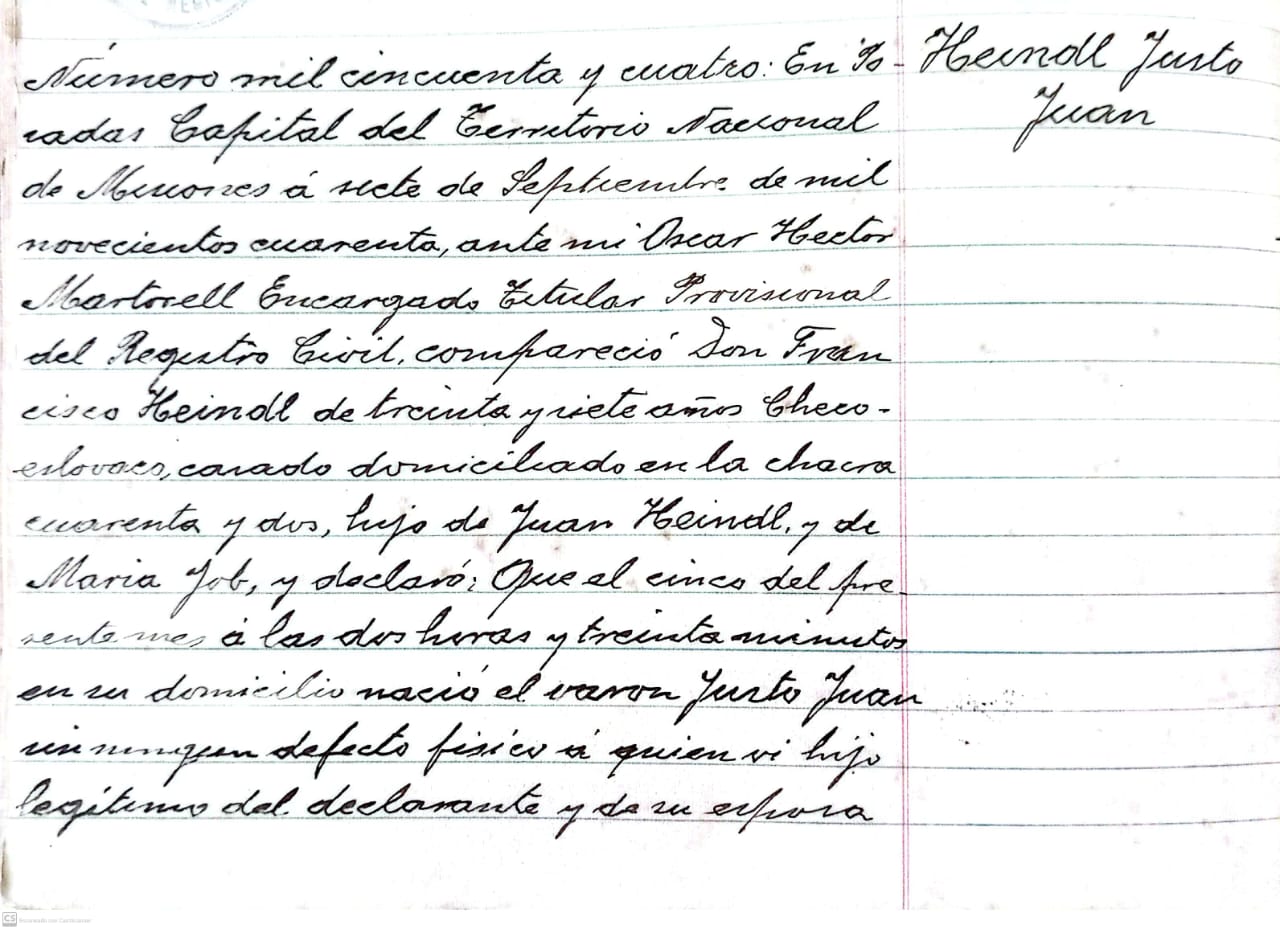 Número mil cincuenta y cuatro: En Po-
sadas Capital del Territorio Nacional
de Misiones á siete de Septiembre de mil
novecientos cuarenta, ante mi Oscar Hector
Martorell Encargado Titular Provisional
del Registro Civil, compareció Don Fran
cisco Heindl de treinta y siete años Checo-
eslovaco, casado domiciliado en la chacra
cuarenta y dos, hijo de Juan Heindl, y de
Maria Job, y declaró; Que el cinco del pre-
sente mes á las dos horas y treinta minutos
en su domicilio nació el varon Justo Juan
sin ningun defecto fisico á quien vi hijo
legítimo del declarante y de su esposa
Heindl Justo
Juan
CS Escaneado con CamScanner